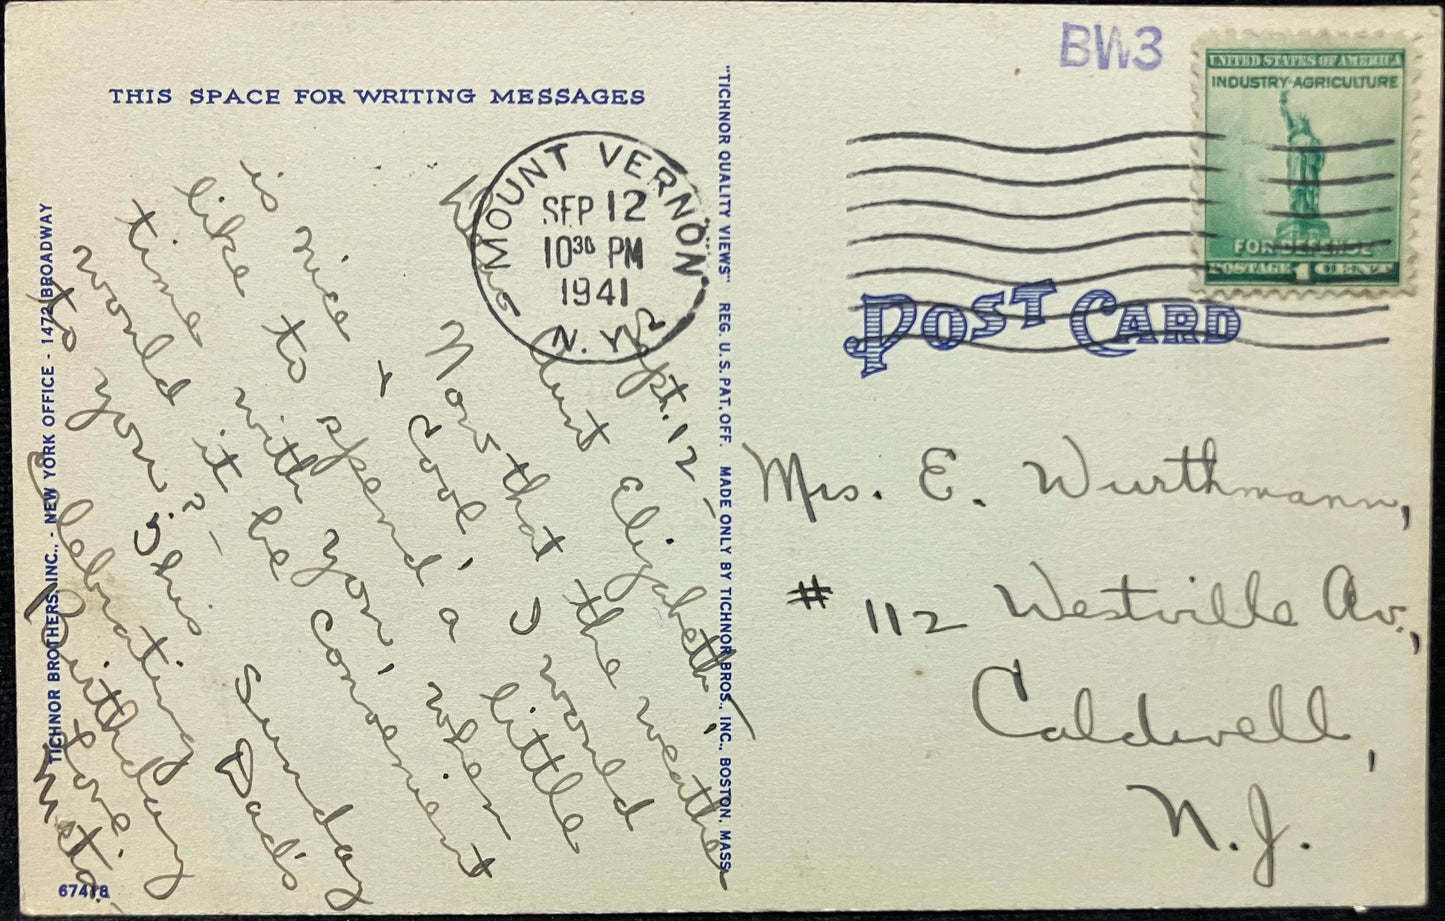 BW3
THIS SPACE FOR WRITING MESSAGES
UNITED STATES OF AMERICA
INDUSTRY-AGRICULTURE
FOR DEFENSE
POSTAGE 1 CENT
MOUNT VERNON
SEP 12
10 30 PM
1941
N.Y.
POST CARD
Sept. 12 -
Aunt Elizabeth,
Now that the weather
is nice & cool, I would
like to spend a little
time with you, when
would it be convenient
to you? - This Sunday
Celebrating Dad's
Birthday
Love
Meta.
Mrs. E. Wurthmann,
# 112 Westville Av.,
Caldwell,
N.J.
"TICHNOR QUALITY VIEWS" REG. U.S. PAT. OFF. MADE ONLY BY TICHNOR BROS., INC., BOSTON, MASS.
TICHNOR BROTHERS, INC., - NEW YORK OFFICE - 1472 BROADWAY
67418